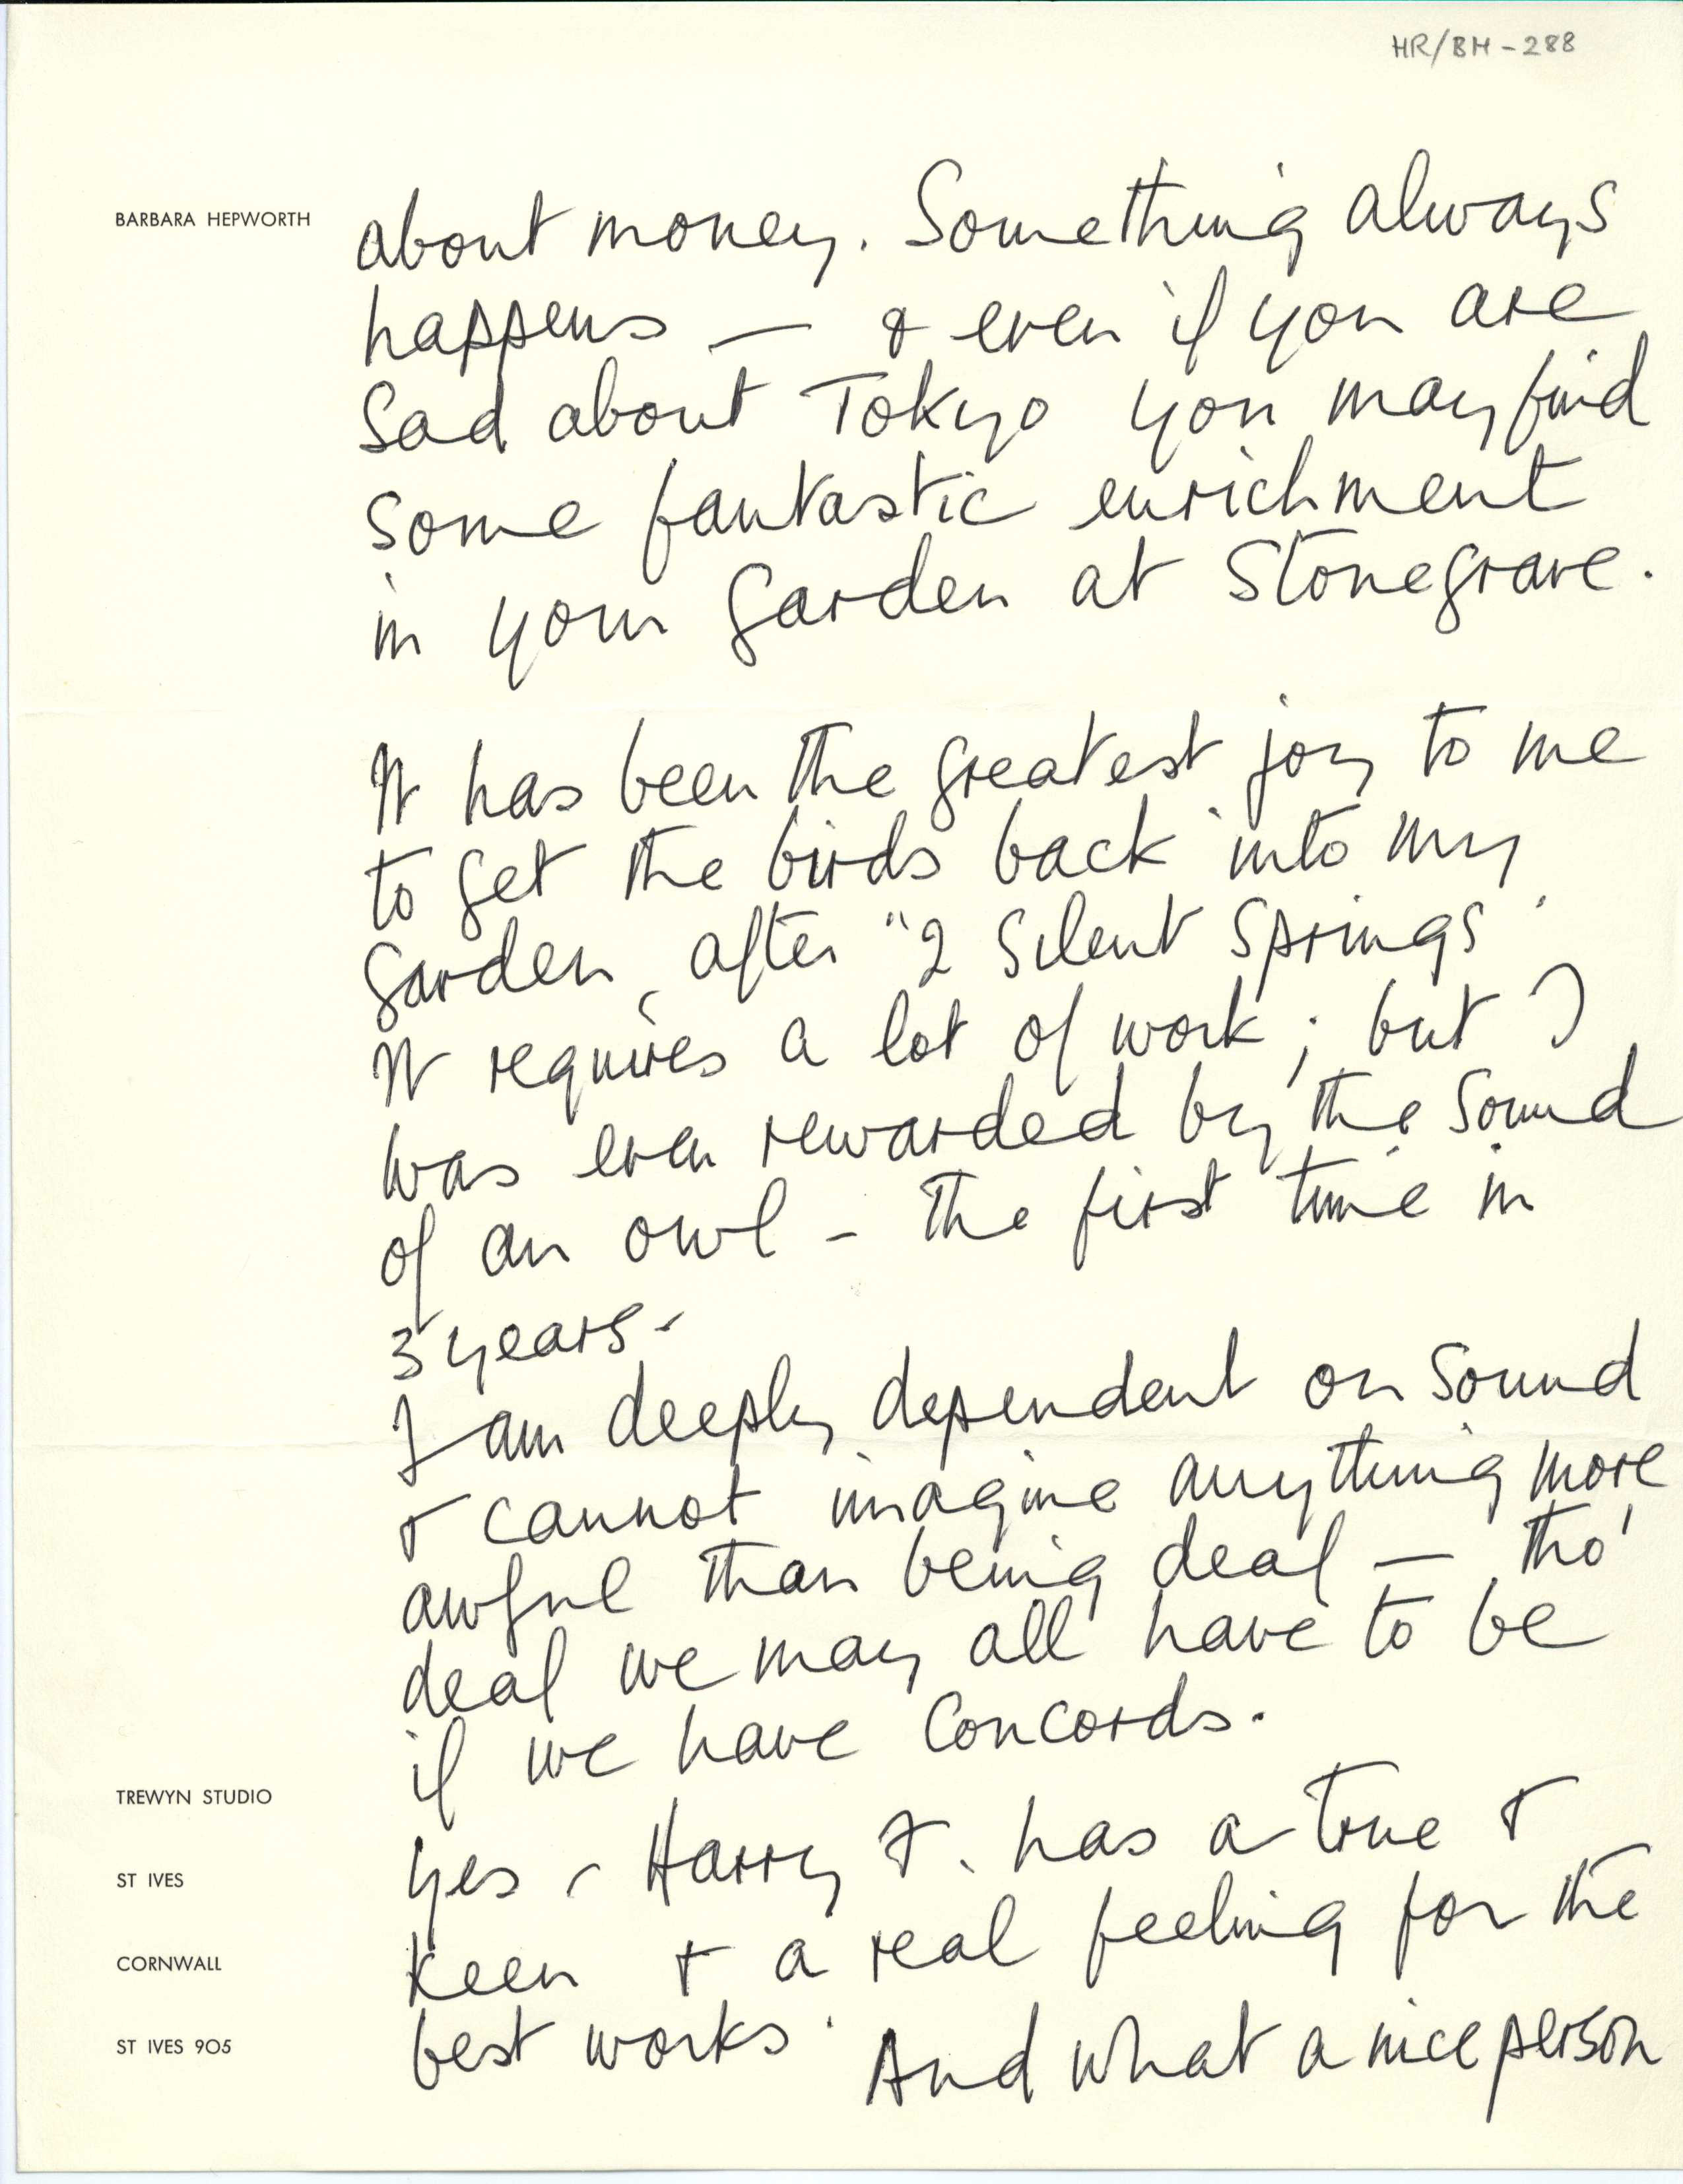 HR/BH-288
BARBARA HEPWORTH
about money. Something always
happens — & even if you are
sad about Tokyo you may find
some fantastic enrichment
in your garden at Stonegrave.
It has been the greatest joy to me
to get the birds back into my
garden, after "2 Silent Springs".
It requires a lot of work; but I
was even rewarded by the sound
of an owl - the first time in
3 years.
I am deeply dependent on sound
& cannot imagine anything more
awful than being deaf — tho'
deaf we may all have to be
if we have Concords.
Yes - Harry F. has a true &
keen & a real feeling for the
best works. And what a nice person
TREWYN STUDIO
ST IVES
CORNWALL
ST IVES 905